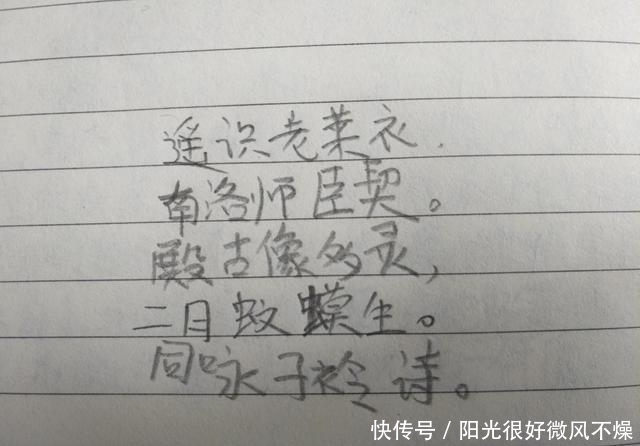 遥识老莱衣.
南洛师臣契。
殿古像多灵,
二月蚊蟆生。
同咏子衿诗。
快传号/阳光很好微风不燥